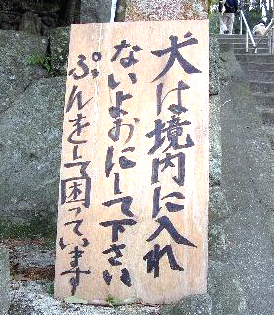 犬は境内に入れ
ないよおにして下さい
ぷんをして困っています